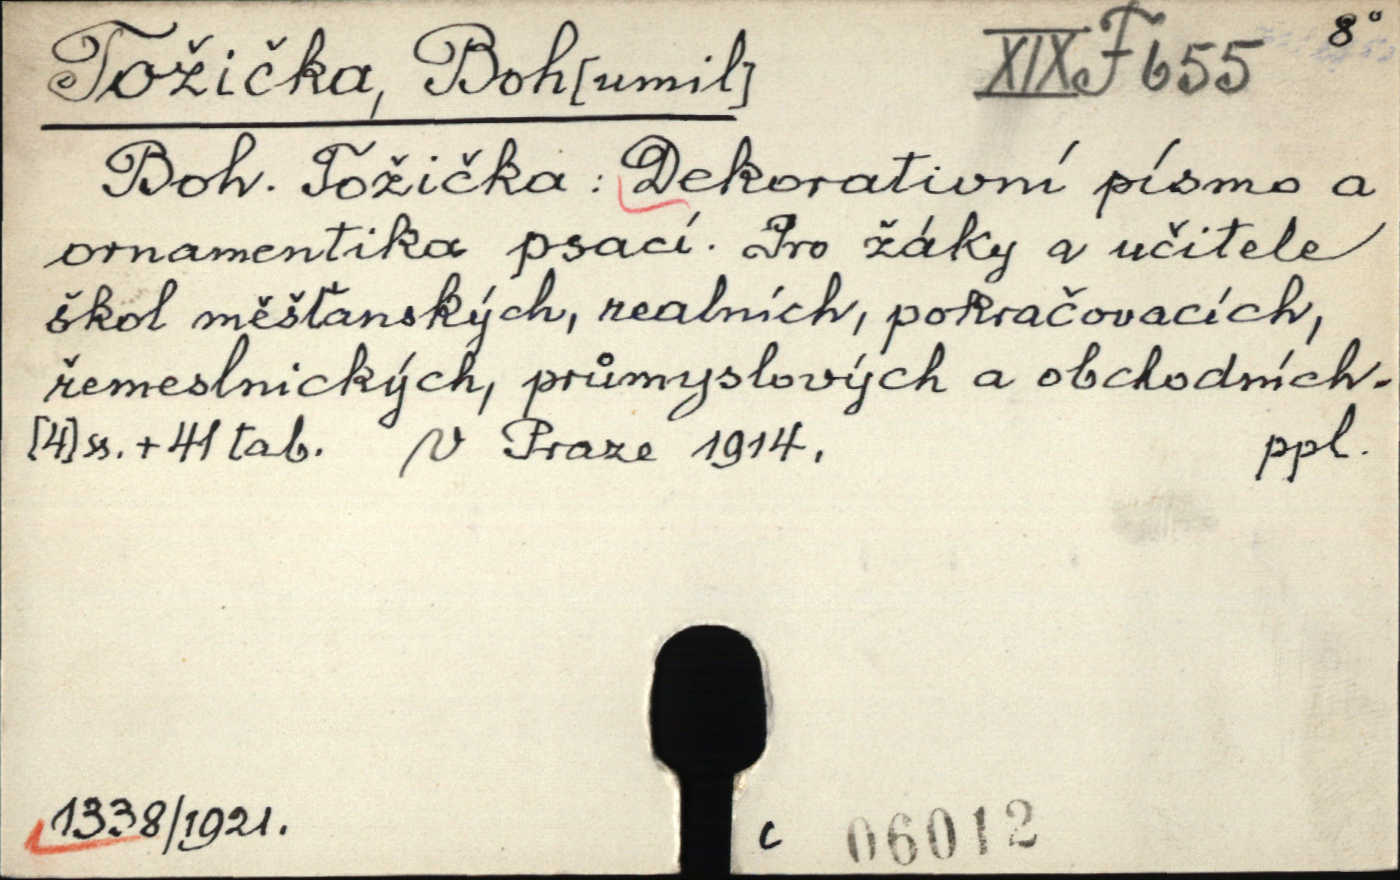 Tožička, Boh[umil]
XIX F 655
8°
Boh. Tožička: Dekorativní písmo a
ornamentika psací. Pro žáky a učitele
škol měšťanských, realních, pokračovacích,
řemeslnických, průmyslových a obchodních.
[4] ss. + 41 tab. V Praze 1914. ppl.
1338/1921.
c 06012